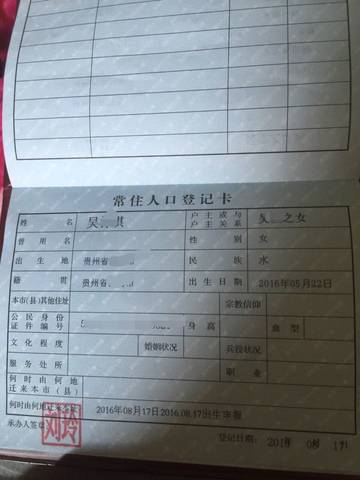 常住人口登记卡
姓名 吴 琪 户主或与户主关系 之女
曾用名 性别 女
出生地 贵州省 民族 水
籍贯 贵州省 出生日期 2016年05月22日
本市(县)其他住址 宗教信仰
公民身份证件编号 身高 血型
文化程度 婚姻状况 兵役状况
服务处所 职业
何时由何地迁来本市(县)
何时由何地迁来本址 2016年08月17日2016.08.17出生申报
承办人签章: 刘玲 登记日期: 2016年 08月 17日